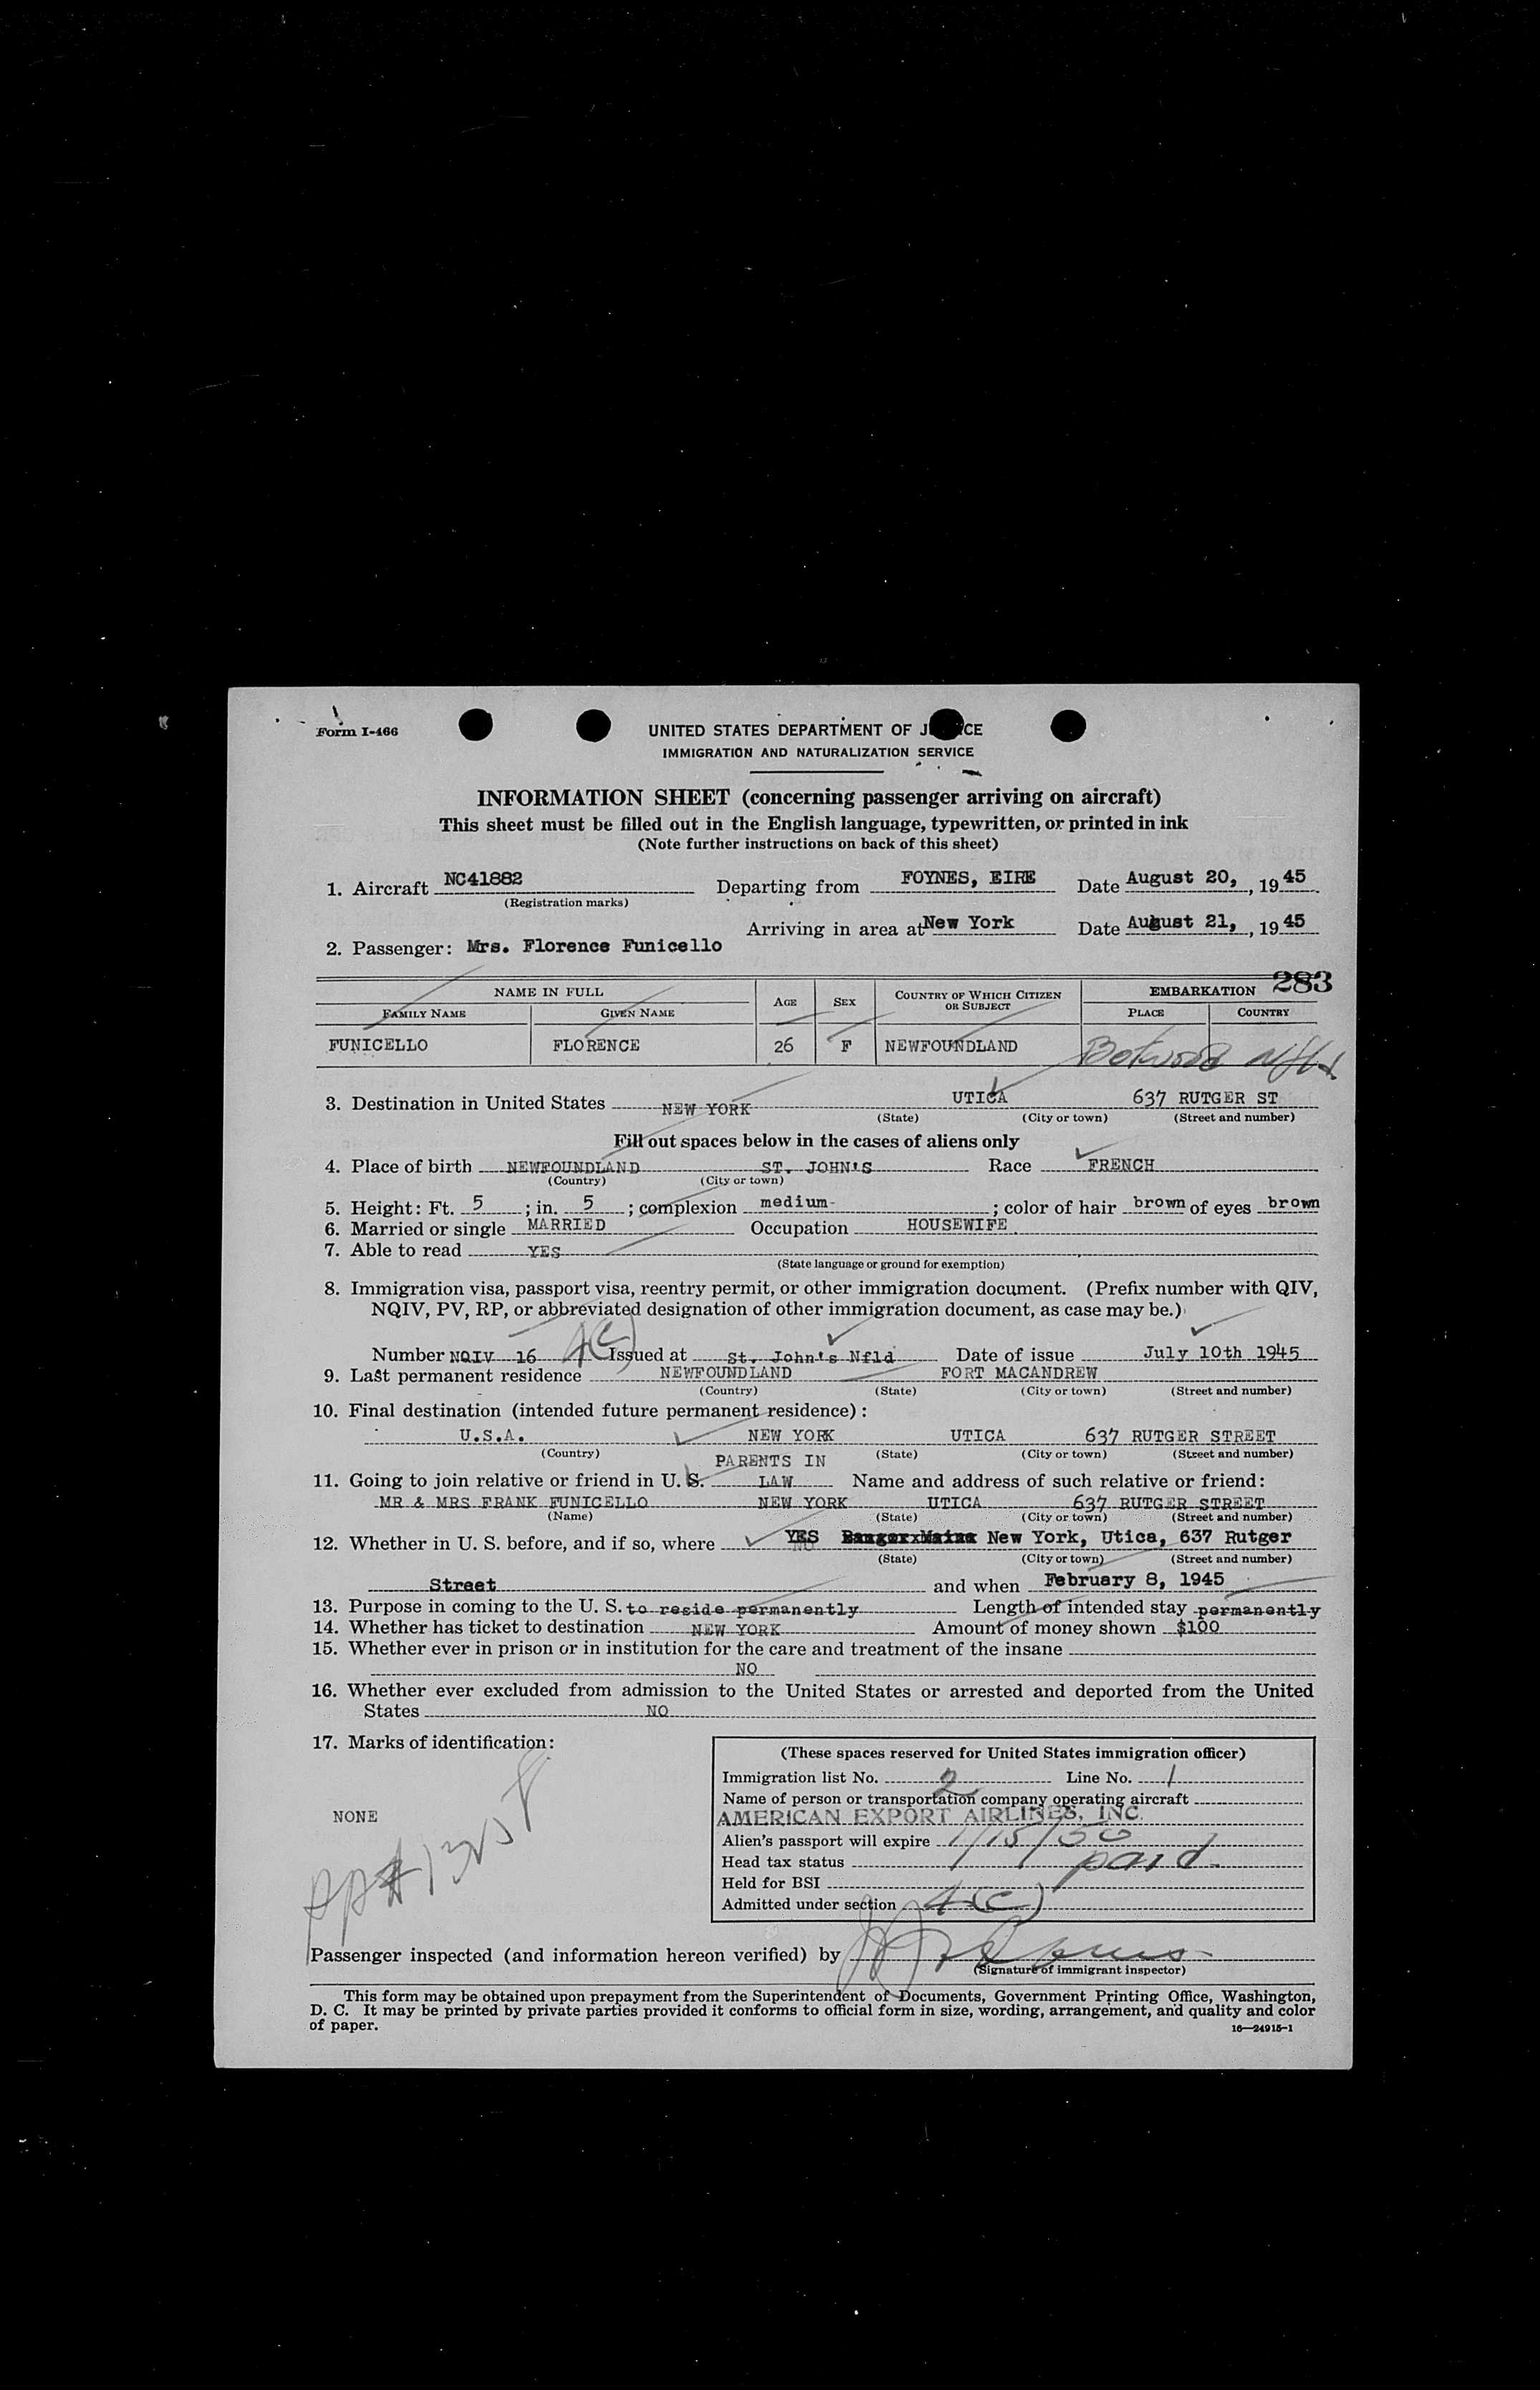 Form I-466
UNITED STATES DEPARTMENT OF J CE
IMMIGRATION AND NATURALIZATION SERVICE
INFORMATION SHEET (concerning passenger arriving on aircraft)
This sheet must be filled out in the English language, typewritten, or printed in ink
(Note further instructions on back of this sheet)
1. Aircraft NC41882 Departing from FOYNES, EIRE Date August 20, , 19 45
(Registration marks)
Arriving in area at New York Date August 21, , 19 45
2. Passenger: Mrs. Florence Funicello
283
NAME IN FULL AGE SEX COUNTRY OF WHICH CITIZEN OR SUBJECT EMBARKATION
FAMILY NAME GIVEN NAME PLACE COUNTRY
FUNICELLO FLORENCE 26 F NEWFOUNDLAND Botwood Nfld
3. Destination in United States NEW YORK UTICA 637 RUTGER ST
(State) (City or town) (Street and number)
Fill out spaces below in the cases of aliens only
4. Place of birth NEWFOUNDLAND ST. JOHN'S Race FRENCH
(Country) (City or town)
5. Height: Ft. 5 ; in. 5 ; complexion medium ; color of hair brown of eyes brown
6. Married or single MARRIED Occupation HOUSEWIFE
7. Able to read YES
(State language or ground for exemption)
8. Immigration visa, passport visa, reentry permit, or other immigration document. (Prefix number with QIV,
NQIV, PV, RP, or abbreviated designation of other immigration document, as case may be.)
Number NQIV 16 4(c) Issued at St. John's Nfld Date of issue July 10th 1945
9. Last permanent residence NEWFOUNDLAND FORT MACANDREW
(Country) (State) (City or town) (Street and number)
10. Final destination (intended future permanent residence):
U.S.A. NEW YORK UTICA 637 RUTGER STREET
(Country) (State) (City or town) (Street and number)
PARENTS IN
11. Going to join relative or friend in U. S. LAW Name and address of such relative or friend:
MR & MRS FRANK FUNICELLO NEW YORK UTICA 637 RUTGER STREET
(Name) (State) (City or town) (Street and number)
12. Whether in U. S. before, and if so, where YES New York, Utica, 637 Rutger
(State) (City or town) (Street and number)
Street and when February 8, 1945
13. Purpose in coming to the U. S. to reside permanently Length of intended stay permanently
14. Whether has ticket to destination NEW YORK Amount of money shown $100
15. Whether ever in prison or in institution for the care and treatment of the insane
NO
16. Whether ever excluded from admission to the United States or arrested and deported from the United
States NO
17. Marks of identification:
NONE
(These spaces reserved for United States immigration officer)
Immigration list No. 2 Line No. 1
Name of person or transportation company operating aircraft
AMERICAN EXPORT AIRLINES, INC.
Alien's passport will expire 1/15/50
Head tax status paid
Held for BSI
Admitted under section 4(c)
Passenger inspected (and information hereon verified) by
(Signature of immigrant inspector)
This form may be obtained upon prepayment from the Superintendent of Documents, Government Printing Office, Washington,
D. C. It may be printed by private parties provided it conforms to official form in size, wording, arrangement, and quality and color
of paper.
16—24915-1